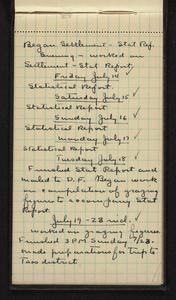 Began Settlement - Stat Rep.
Evening - worked on
Settlement - Stat Report
Friday July 14 ✓
Statistical Report
Saturday July 15 ✓
Statistical Report
Sunday July 16 ✓
Statistical Report
Monday July 17 ✓
Statistical Report
Tuesday July 18 ✓
Finished Stat Report and
mailed to D.F. Began work
on compilation of grazing
figures to accompany Stat
Report.
July 19 - 23 incl.
worked on grazing figures
Finished 3 PM Sunday 7/23.
made preparations for trip to
Taos district.